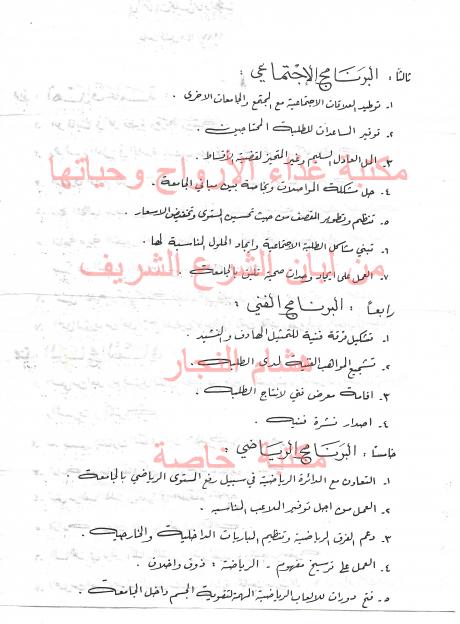 ثالثاً : البرنامج الإجتماعي :
١. توطيد العلاقات الاجتماعية مع المجتمع والجامعات الاخرى .
٢. توفير المساعدات للطلبة المحتاجين .
٣. الحل العادل السليم وغير المتحيز لقضية الأقساط
مكتبة غذاء الأرواح وحياتها
٤. حل مشكلة المواصلات وبخاصة بين مباني الجامعة .
٥. تنظيم وتطوير المقصف من حيث تحسين المستوى وتخفيض الاسعار .
٦. تبني مشاكل الطلبة الاجتماعية وايجاد الحلول المناسبة لها .
من لبان الشرع الشريف
٧. العمل على ايجاد وحدات صحية تليق بالجامعة .
رابعاً : البرنامج الفني :
١. تشكيل فرقة فنية للتمثيل الهادف والنشيد .
هشام النجار
٢. تشجيع المواهب الفنية لدى الطلبة .
٣. اقامة معرض فني لانتاج الطلبة .
٤. اصدار نشرة فنية .
خامساً : البرنامج الرياضي :
مكتبة خاصة
١. التعاون مع الدائرة الرياضية في سبيل رفع المستوى الرياضي بالجامعة .
٢. العمل من اجل توفير الملاعب المناسبة .
٣. دعم الفرق الرياضية وتنظيم المباريات الداخلية والخارجية .
٤. العمل على ترسيخ مفهوم - الرياضة : ذوق واخلاق .
٥. فتح دورات للالعاب الرياضية المهمة لتقوية الجسم داخل الجامعة .